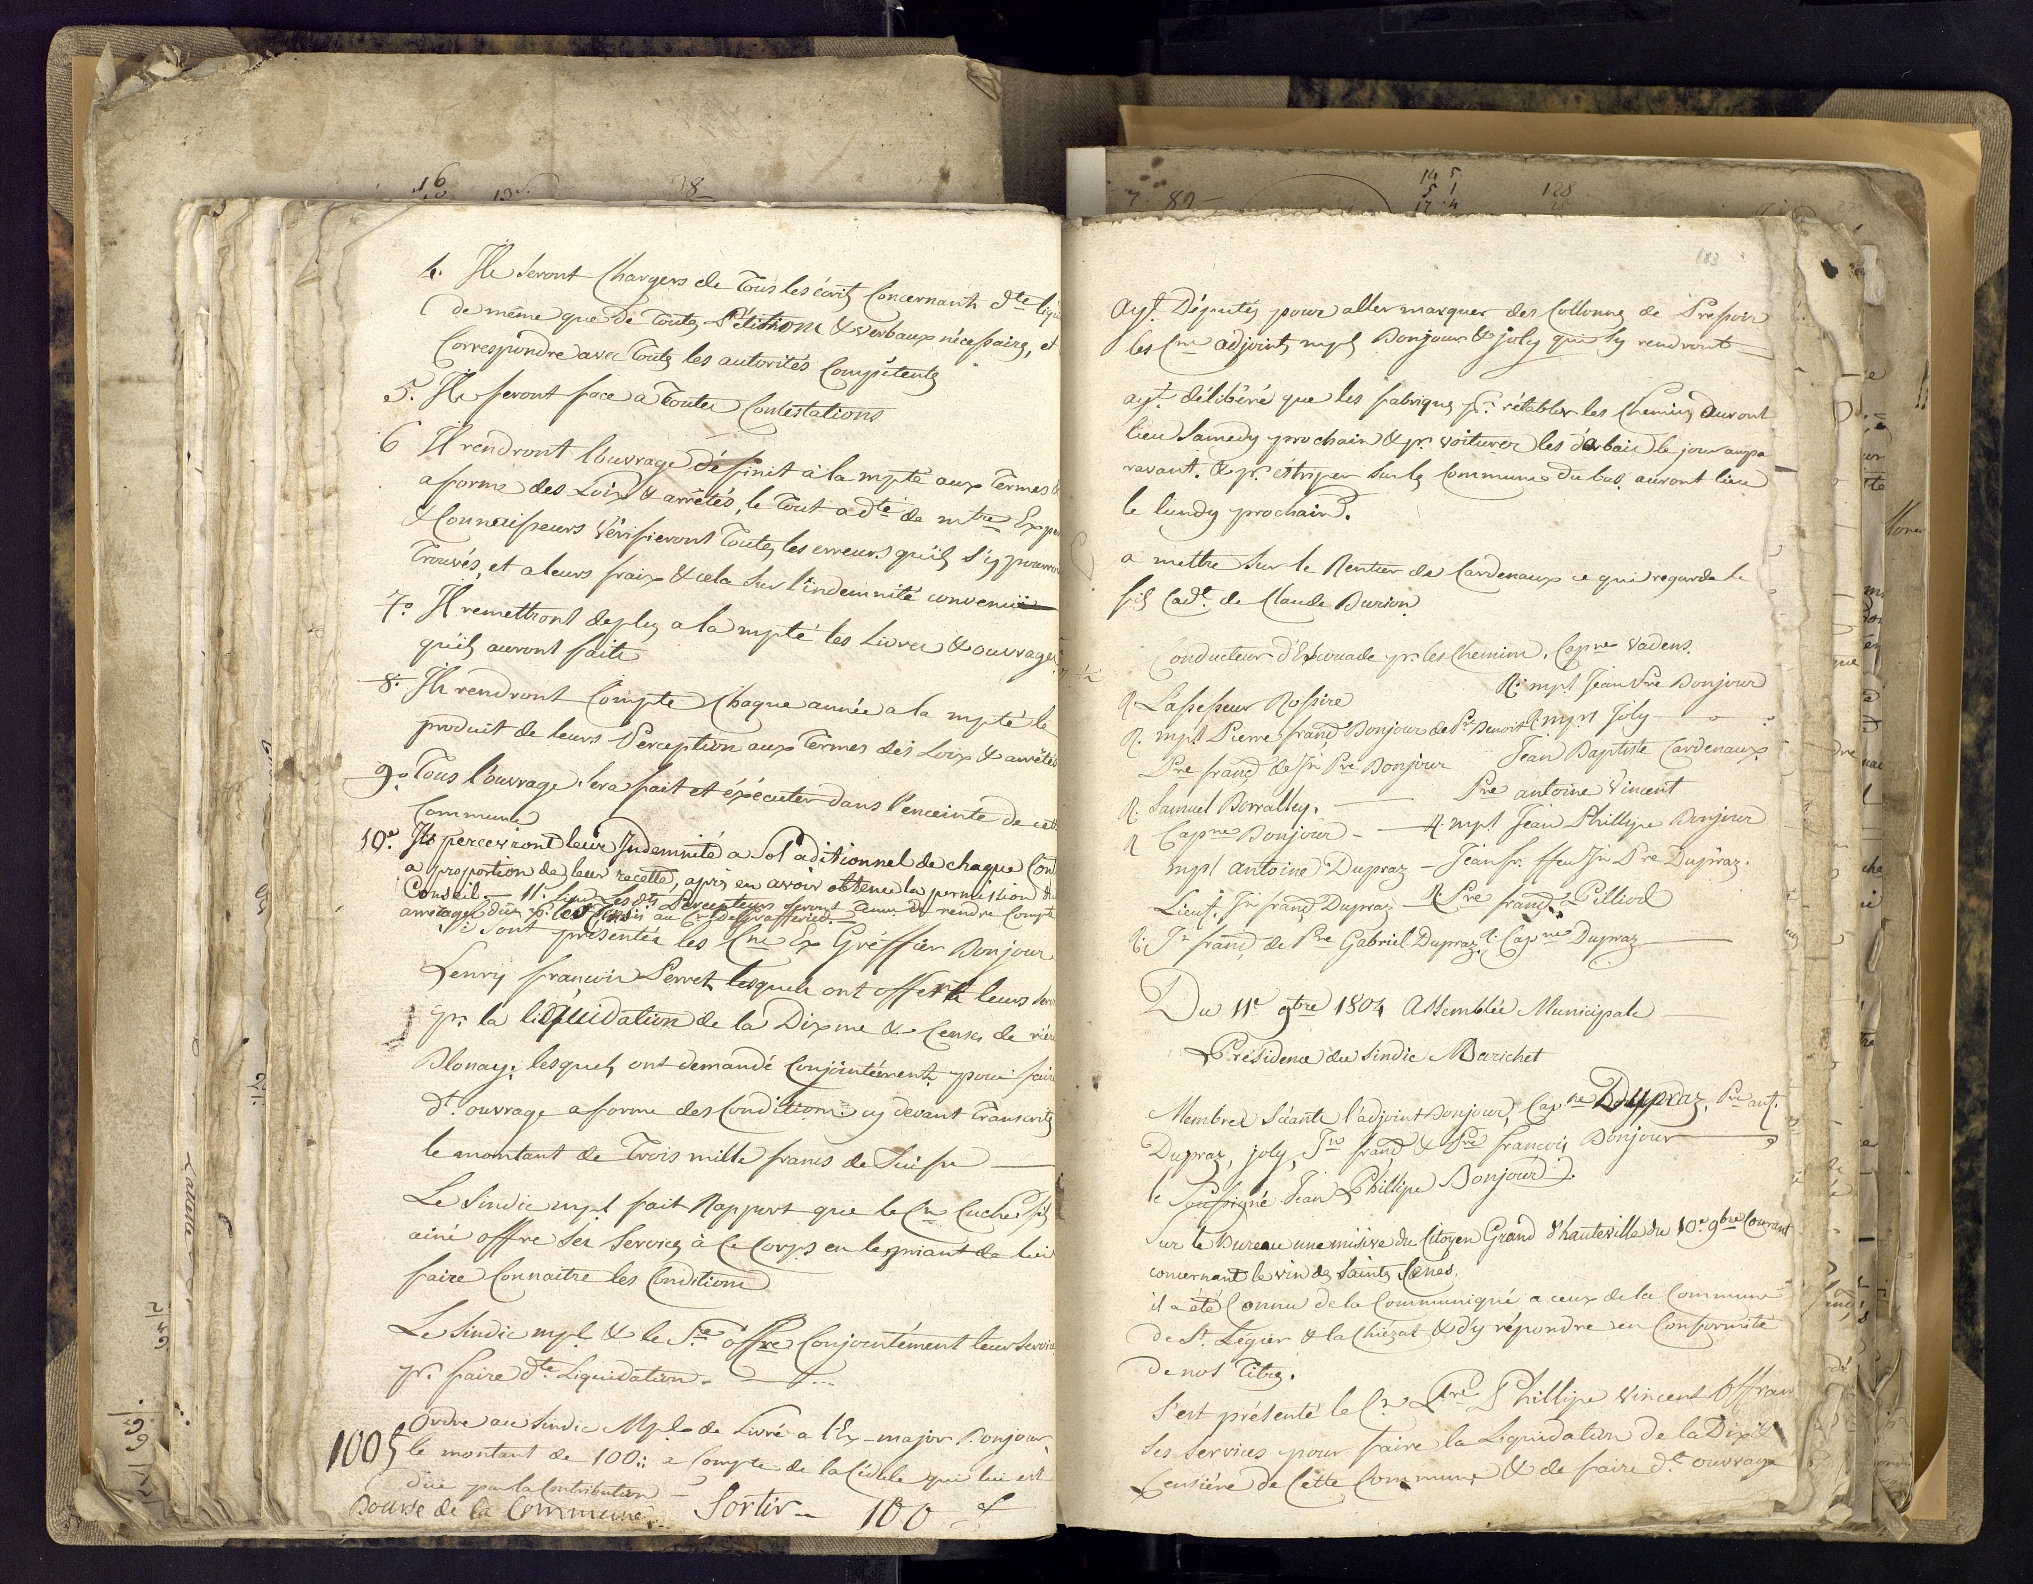 4. Ils seront Chargers de Tous les écrits Concernants dte liqui
de même que de Toutes Pétitions & verbaux nécessaires, et
Correspondre avec Toutes les autorités Compétentes
5. Ils feront face a Toutes Contestations
6 Il rendront l'ouvrage définit à la mpté aux Termes &
a forme des Loix & arrêtés, le Tout a dte de mtre Exper
& Connaisseurs Vérifieront Toutes les erreurs qu'ils s'y pourron
Trouvés, et a leurs fraix & cela sur l'indemnité convenüe
7º. Il remettront de plus a la mpté les Livres & ouvrages
qu'ils auront faits
8º. Ils rendront Compte Chaque année a la mpté le
produit de leurs Perception aux Termes des Loix & arrêtés
9º. Tous l'ouvrage sera fait et éxécuter dans l'enceinte de cet
Commune
10e. Ils percevront leur Indemnité a Sol aditionnel de chaque Con
a proportion de leur recette, après en avoir obtenu la permission du
Conseil — 11e. Les dts Percepteurs seront tenus de rendre Compte
arrérages dus
Se sont présentés les Cne Ex Gréffier Bonjour
Henry françois Perret lesquels ont offerts leurs serv
pr. la liquidation de la Dixme & Censes de rière
Blonay; lesquels ont demandé Conjointément pour faire
dt. ouvrage a forme des Conditions cy devant Transcrites
le montant de Trois mille francs de Suisse —
Le Sindic mpl. fait Rapport que le Cne Cuche fils
ainé offre ses Services à Ce Corps en les priant de lui
faire Connaitre les Conditions
Le Sindic mpl. & le Sre offre Conjointément leur servic
pr. faire dte Liquidation. —
Ordre au Sindic Mpl. de Livré a l'Ex-major Bonjour
100 f le montant de 100 :: a Compte de la Cédule qui lui est
düe par la Contribution —
Bourse de la Commune. Sortir — 100 f
183
ayt. Députés pour aller marquer des Collonnes de Pressoir
les Cne adjoints mpl Bonjour & joly qui s'y rendront —
ayt. délibéré que les fabriques pr. rétablir les Chemins auront
lieu Samedy prochain & pr. voiturer les dérbais le jour aupa
ravant. & pr. étriper sur les Communs du bas auront lieu
le lundy prochain.
a mettre sur le Rentier de Cardenaux ce qui regarde le
fils Cadt. de Claude Burion
Conducteur d'Escouade pr. les Chemins. Capne Vadens.
R. L'assesseur Rossire R. mpl Jean Pre Bonjour
R. mpl Pierre franç Bonjour de Pre Benoit R. mpl Joly —
Pre franç de Jn Pre Bonjour Jean Baptiste Cardenaux
R. Samuel Borralley. — Pre antoine Vincent
R Capne Bonjour — R. mpl Jean Phillipe Bonjour
mpl antoine Dupraz — Jean fr. ffeu Jn Pre Dupraz.
Lieut. Jn franç Dupraz — R Pre franç Pilliod
R. Jn franç de Pre Gabriel Dupraz R. Capne Dupraz —
Du 11e 9bre 1804 Assemblée Municipale —
Présidence du Sindic Marichet
Membres Séants l'adjoint Bonjour, Capne Dupraz, Pre ant.
Dupraz, joly, Jn franç & Pre françois Bonjour —
le Soussigné Jean Phillipe Bonjour.
Sur le Bureau une misive du Citoyen Grand d'hauteville du 10e 9bre Courant
concernant le vin des Saintes Cènes.
il a été Connu de la Communiqué a ceux de la Commune
de St. Légier & la Chiézat & d'y répondre en Conformité
de nos Titres.
S'est présenté le Cn Pre Phillipe Vincent Offrant
Ses Services pour faire la Liquidation de la Dixme
Censière de Cette Commune & de faire dt. ouvrage